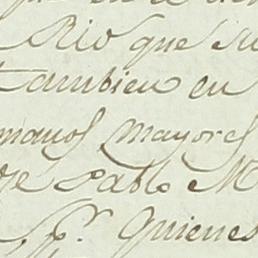 Rio que
tambien en
manos mayores
de Pablo M
Sr. quienes